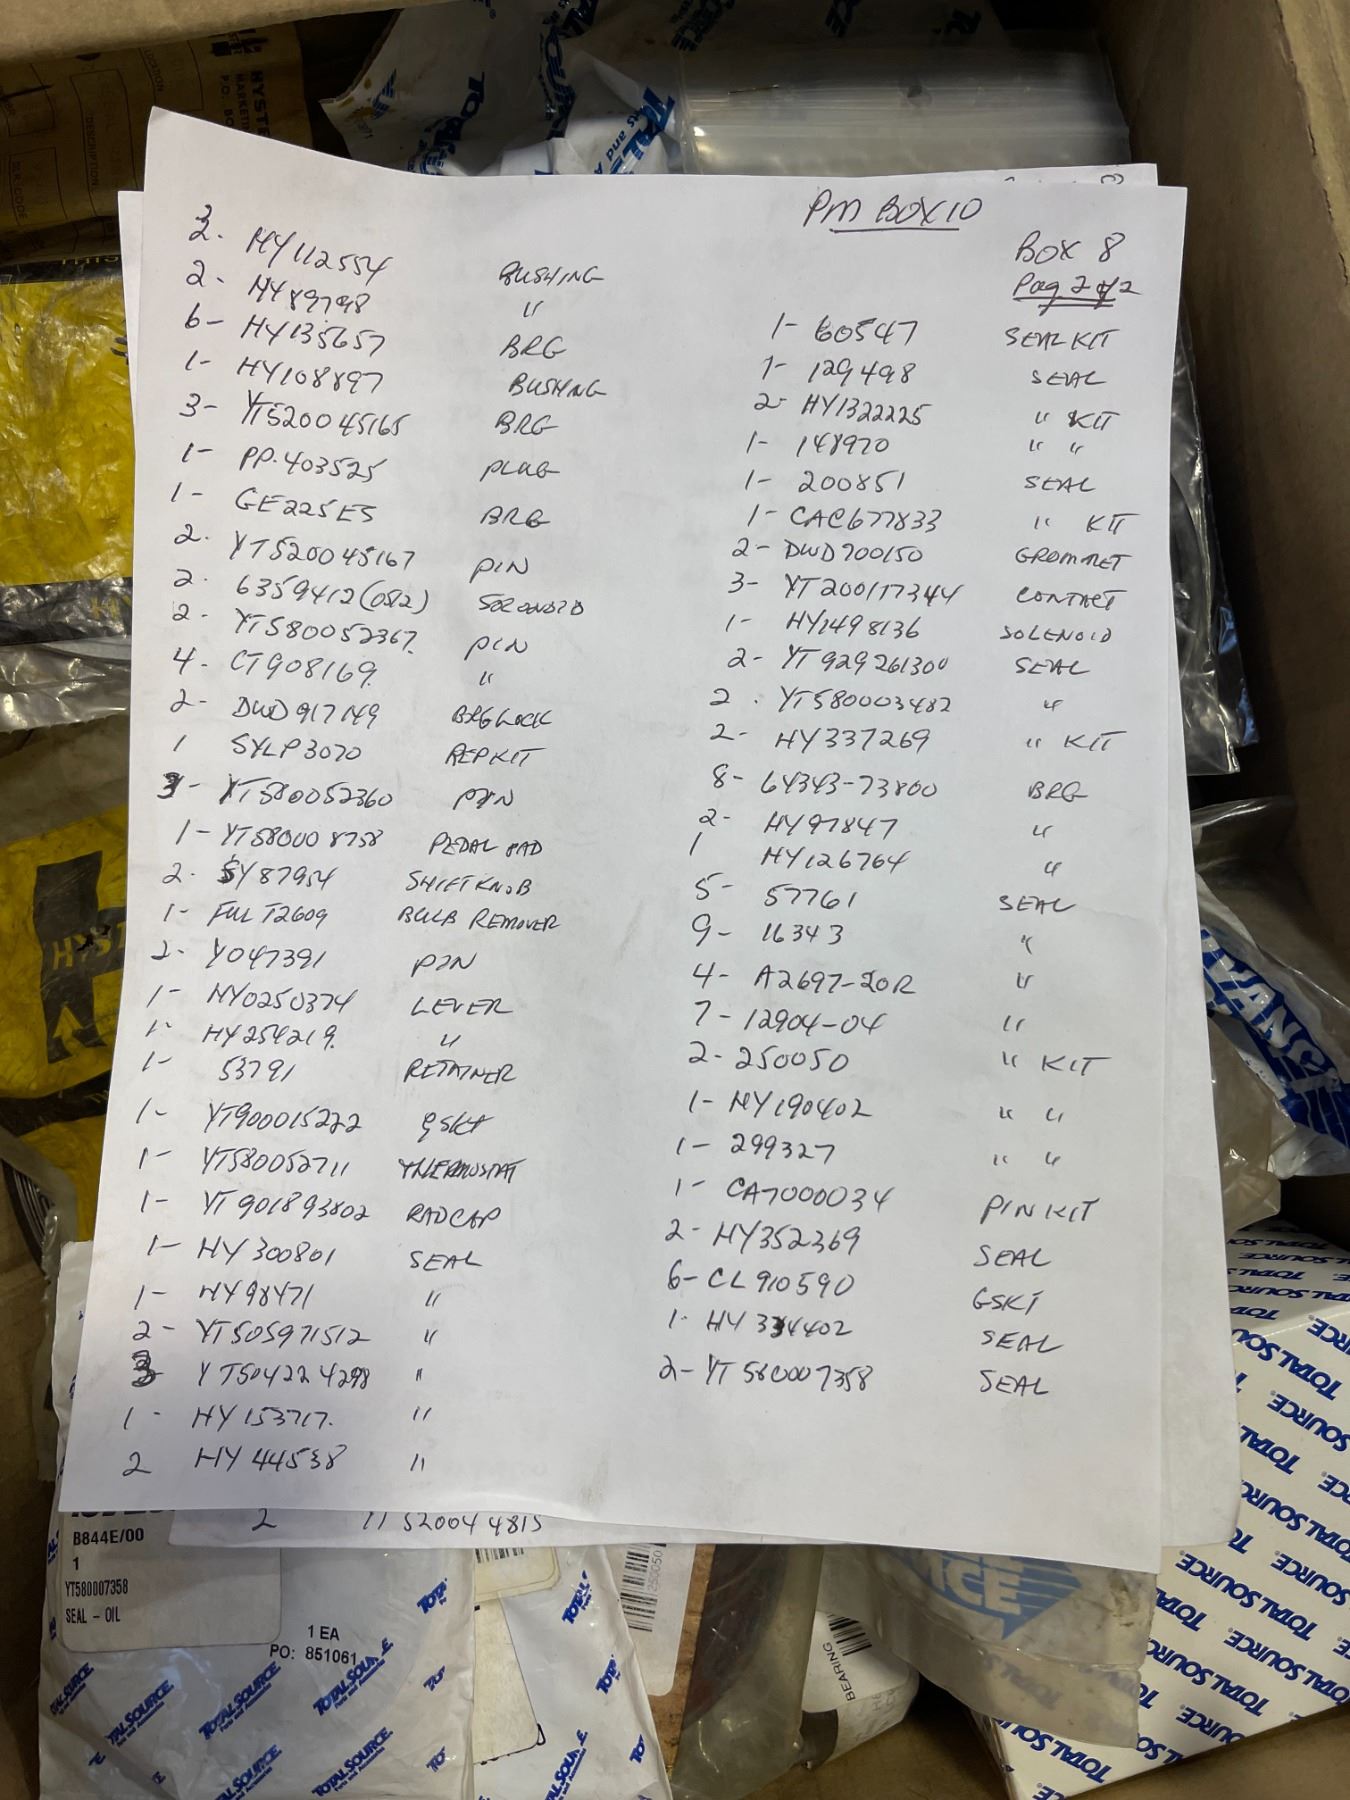 PM BOX 10
BOX 8
Pag 2 of 2
2. HY112554 BUSHING
2- HY89798 "
6- HY135657 BRG
1- HY108897 BUSHING
3- YT520045165 BRG
1- PP.403525 PLUG
1- GE225ES BRG
2. YT520045167 PIN
2. 6359412(OS12) SOLONOID
2- YT580052367. PIN
4- CT908169. "
2- DWD917149 BRG LOCK
1 SYLP3070 REPKIT
3- YT580052360 PIN
1- YT580008758 PEDAL PAD
2. SY87954 SHIFT KNOB
1- FULT2609 BULB REMOVER
2- YO47391 PIN
1- HY0250374 LEVER
1- HY254219. "
1- 53791 RETAINER
1- YT900015222 GSKT
1- YT580052711 THERMOSTAT
1- YT901893802 RADCAP
1- HY300801 SEAL
1- HY98471 "
2- YT505971512 "
3 YT504224298 "
1- HY153717. "
2 HY44538 "
1- 60547 SEAL KIT
1- 129498 SEAL
2- HY1322225 " KIT
1- 148970 " "
1- 200851 SEAL
1- CAC677833 " KIT
2- DWD700150 GROMMET
3- YT200177344 CONTACT
1- HY1498136 SOLENOID
2- YT929261300 SEAL
2. YT580003482 "
2- HY337269 " KIT
8- 64343-73800 BRG
2- HY97847 "
1 HY126764 "
5- 57761 SEAL
9- 16343 "
4- A2697-20R "
7- 12904-04 "
2- 250050 " KIT
1- HY190402 " "
1- 299327 " "
1- CA7000034 PIN KIT
2- HY352369 SEAL
6- CL910590 GSKT
1- HY334402 SEAL
2- YT580007358 SEAL
2 YT520044815
B844E/00
1
YT580007358
SEAL - OIL
1 EA
PO: 851061
250050
BEARING
HYSTE
MARKETIN
P.O. BO
DESCRIPTION
BAR CODE
TOTALSOURCE
TOTALSOURCE
TOTALSOURCE
TOTAL SOURCE
TOTAL SOURCE
TOTAL SOURCE